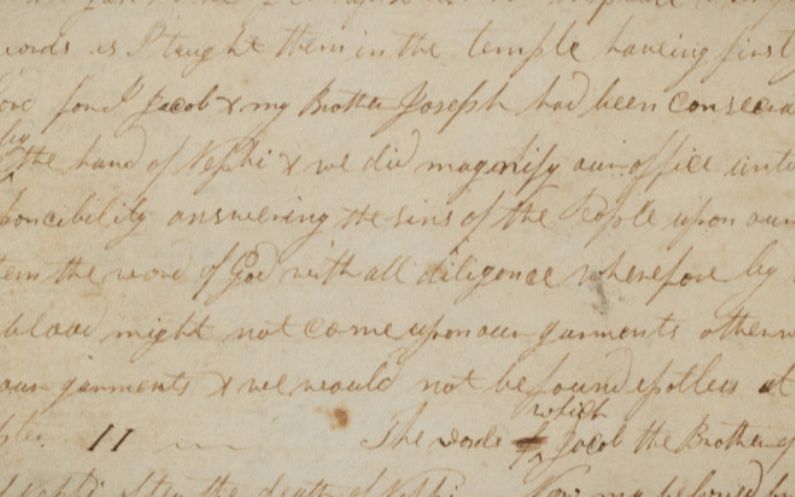 words as I taught them in the temple haveing first
for I Jacob & my Brother Joseph had been consecra
by
the hand of Nephi & we did magnify our office unto
poncibility answering the sins of the People upon our
tem the word of God with all diligence wherefore by
blood might not come upon our garments otherw
our garments & we would not be found spotless at
which
II The words of Jacob the Brother of
of Nephi after the death of Nephi Now my beloved br